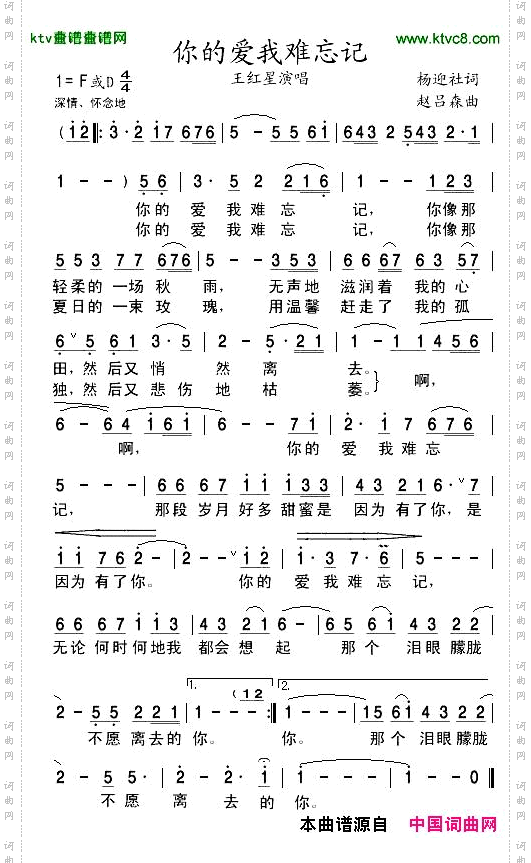 ktv盘谱盘谱网
www.ktvc8.com
你的爱我难忘记
王红星演唱
1=F或D 4/4
杨迎社词
深情、怀念地
赵吕森曲
(1 2 ‖: 3·2 1 7 6 7 6 | 5 - - 5 5 6 1 | 6 4 3 5 4 3 2 2·1 |
1 - -) 5 6 | 3· 5 2 2 1 6 | 1 - - 1 2 3 |
你的 爱 我难忘 记, 你像那
你的 爱 我难忘 记, 你像那
5 5 3 7 7 6 7 6 | 5 - - 3 5 3 | 6 6 6 7 6 3 5 7 |
轻柔的一场秋 雨, 无声地 滋润着 我的心
夏日的一束玫 瑰, 用温馨 赶走了 我的孤
6 5 6 1 3·5 | 2 - 5 2 1 | 1 - 1 1 4 5 6 |
田,然后又悄 然 离 去。 啊,
独,然后又悲伤 地 枯 萎。
6 - 6 4 1 6 1 | 6 - - 7 1 | 2· 7 1 7 6 |
啊, 你的 爱 我难忘
5 - - - | 6 6 6 7 1 1 3 1 | 4 3 2 1 6·7 |
记, 那段 岁月好多甜蜜是 因为 有了你,是
1 1 7 6 2 - | 2 - - 1 2 | 1·3 7·6 | 5 - - - |
因为有了你。 你的 爱 我难忘 记,
6 6 6 7 1 1 3 | 4 3 5 6 5 3 | 5 6 1 4 3 2 2 |
无论何时何地我 都会想 起 那个 泪眼朦胧
1. (1 2 2.
2 - 5 5 2 2 1 2 | 1 - - - :‖ 1 - - - | 1 5 6 1 4 3 2 2 |
不愿 离去的 你。 你。 那个 泪眼朦胧
2 - 5 5 | 2· 1 2 - | 1 - - - | 1 0 0 0 ‖
不愿 离 去的 你。
本曲谱源自 中国词曲网
词曲网